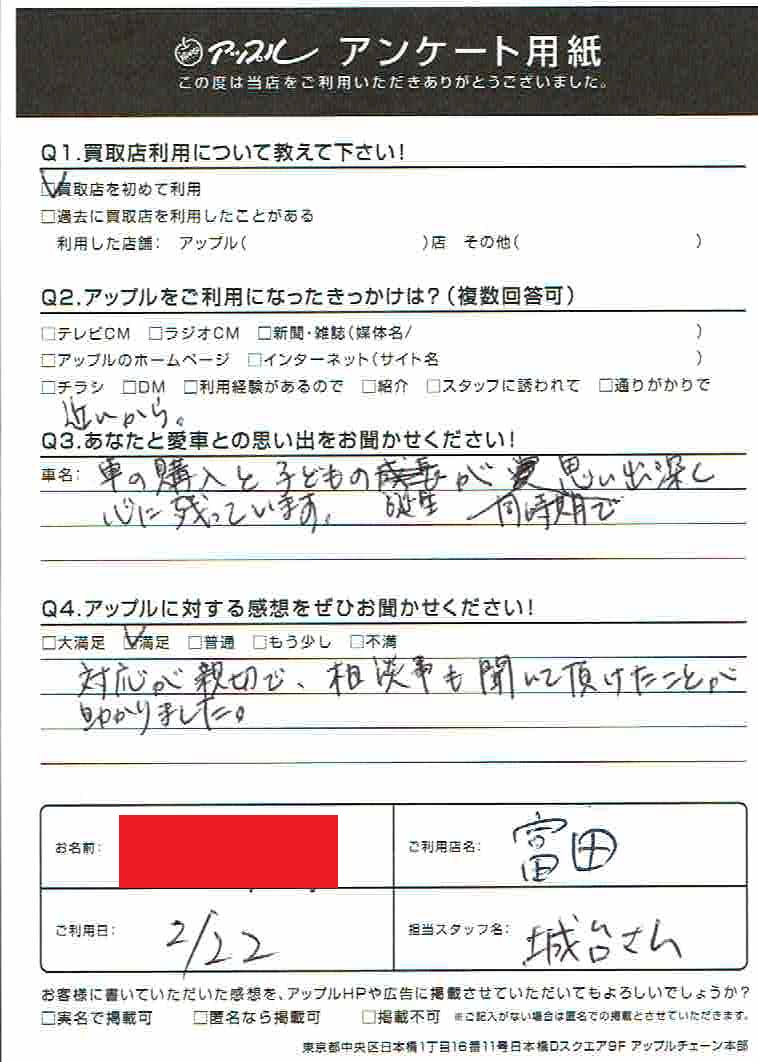 アップル アンケート用紙
この度は当店をご利用いただきありがとうございました。
Q1.買取店利用について教えて下さい!
☑買取店を初めて利用
□過去に買取店を利用したことがある
利用した店舗: アップル( )店 その他( )
Q2.アップルをご利用になったきっかけは?(複数回答可)
□テレビCM □ラジオCM □新聞・雑誌(媒体名/ )
□アップルのホームページ □インターネット(サイト名 )
□チラシ □DM □利用経験があるので □紹介 □スタッフに誘われて □通りがかりで
近いから。
Q3.あなたと愛車との思い出をお聞かせください!
車名: 車の購入と子どもの成長が 思い出深し
心に残っています。 誕生 同時期で
Q4.アップルに対する感想をぜひお聞かせください!
□大満足 ☑満足 □普通 □もう少し □不満
対応が親切で、相談事も聞いて頂けたことが
助かりました。
お名前:
ご利用店名: 富田
ご利用日: 2/22
担当スタッフ名: 城台さん
お客様に書いていただいた感想を、アップルHPや広告に掲載させていただいてもよろしいでしょうか?
□実名で掲載可 □匿名なら掲載可 □掲載不可 ※ご記入がない場合は匿名での掲載とさせていただきます。
東京都中央区日本橋1丁目16番11号日本橋Dスクエア9F アップルチェーン本部